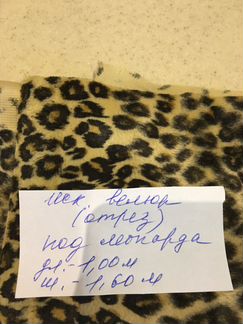 иск. велюр
(отрез)
под леопарда
дл. - 1,00 м
ш. - 1,60 м